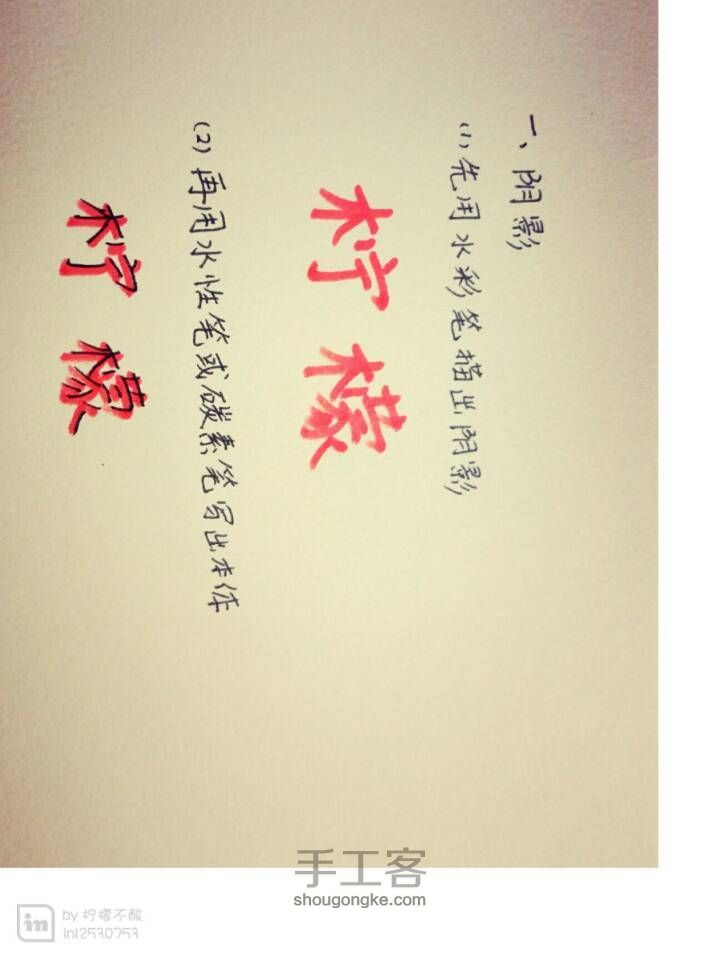 一、阴影
(1)先用水彩笔描出阴影
柠檬
(2)再用水性笔或碳素笔写出本体
柠檬
手工客
shougongke.com
by 柠檬不酸
in12530753